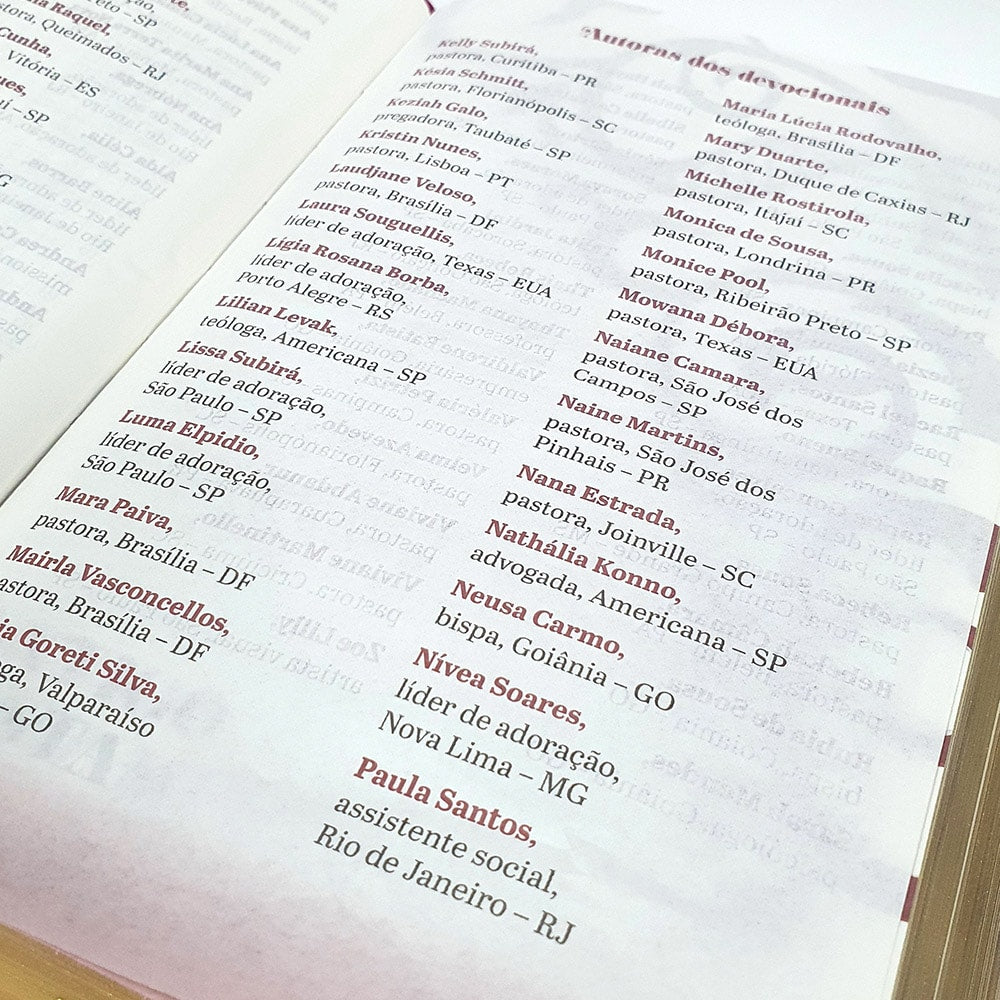 PR
ia Raquel,
stora, Queimados – RJ
Cunha,
Vitória – ES
ues,
– SP
Autoras dos devocionais
Kelly Subirá,
pastora, Curitiba – PR
Késia Schmitt,
pastora, Florianópolis – SC
Keziah Galo,
pregadora, Taubaté – SP
Kristin Nunes,
pastora, Lisboa – PT
Laudjane Veloso,
pastora, Brasília – DF
Laura Souguellis,
líder de adoração, Texas – EUA
Lígia Rosana Borba,
líder de adoração,
Porto Alegre – RS
Lilian Levak,
teóloga, Americana – SP
Lissa Subirá,
líder de adoração,
São Paulo – SP
Luma Elpidio,
líder de adoração,
São Paulo – SP
Mara Paiva,
pastora, Brasília – DF
Mairla Vasconcellos,
astora, Brasília – DF
ia Goreti Silva,
oga, Valparaíso
– GO
Maria Lúcia Rodovalho,
teóloga, Brasília – DF
Mary Duarte,
pastora, Duque de Caxias – RJ
Michelle Rostirola,
pastora, Itajaí – SC
Monica de Sousa,
pastora, Londrina – PR
Monice Pool,
pastora, Ribeirão Preto – SP
Mowana Débora,
pastora, Texas – EUA
Naiane Camara,
pastora, São José dos
Campos – SP
Naine Martins,
pastora, São José dos
Pinhais – PR
Nana Estrada,
pastora, Joinville – SC
Nathália Konno,
advogada, Americana – SP
Neusa Carmo,
bispa, Goiânia – GO
Nívea Soares,
líder de adoração,
Nova Lima – MG
Paula Santos,
assistente social,
Rio de Janeiro – RJ